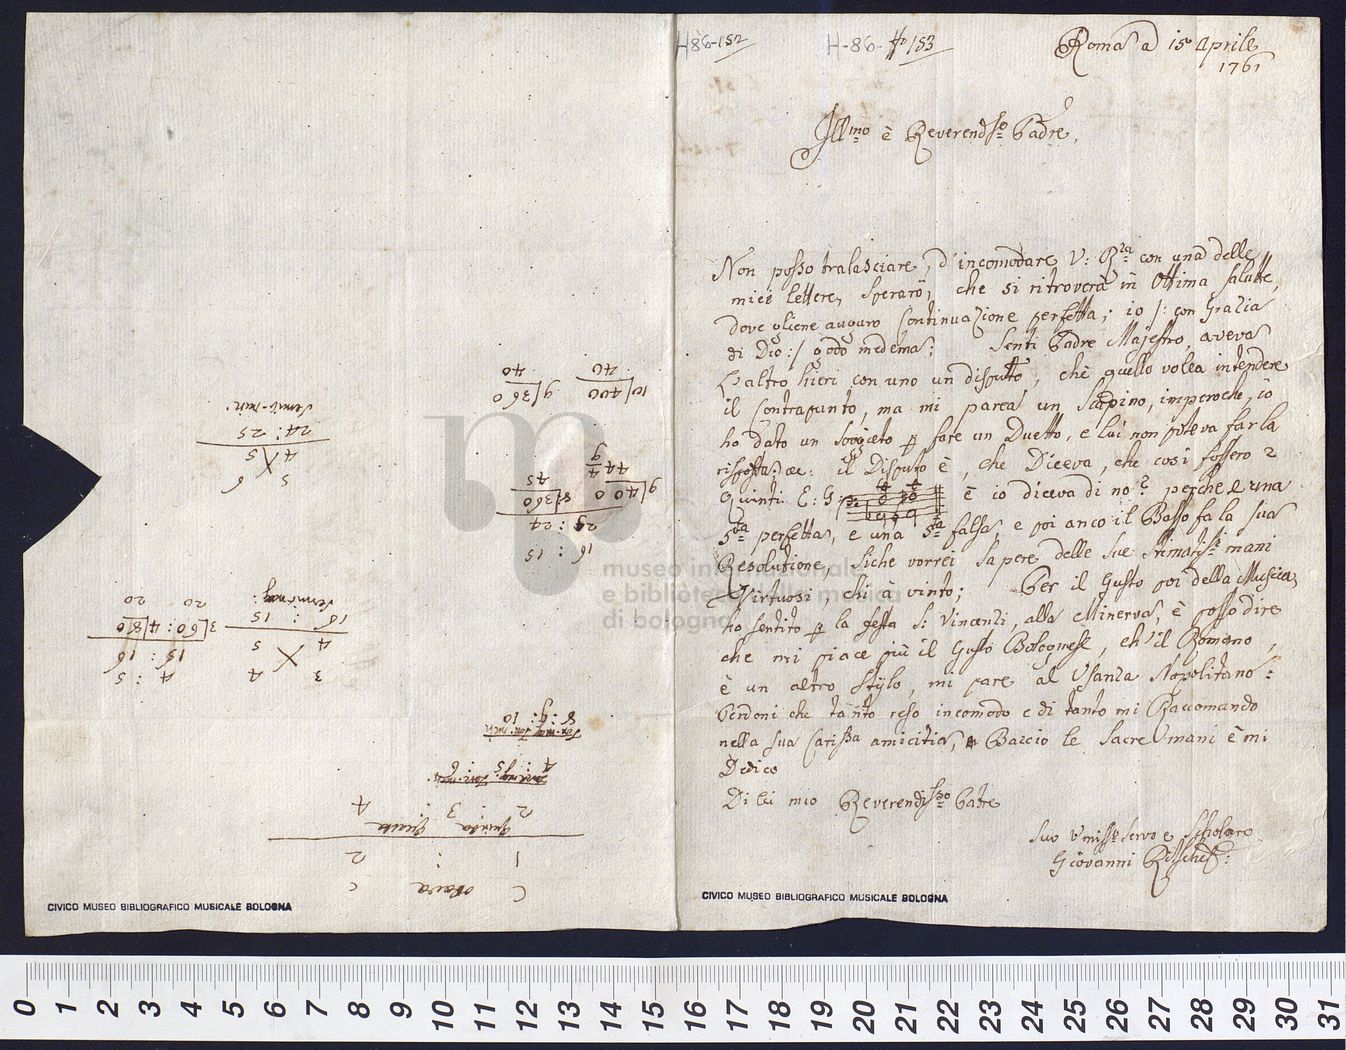 H86-152
H-86-153
Roma a 15 Aprile
1761
Illmo è Reverendsso Padre,
Non posso tralasciare, d'incomodare V: Rza con una delle
miee lettere, sperarò, che si ritroverà in Ottima salutte,
dove gliene auguro Continuazione perfetta; io /: con Grazia
di Dio :/ godo medema; Senti Padre Majestro, aveva
L'altro hieri con uno un disputto, chè quello volea intendere
il Contrapunto, ma mi parea un, imperoche, io
ho dato un soggieto p fare un Duetto, e lui non poteva far la
risposta: il Disputo è, che Diceva, che così fossero 2
Quinti. E: G: è io diceva di no: perche è una
5ta perfetta, e una 5ta falsa, e poi anco il Basso fa la sua
Resolutione, siche vorrei sapere delle sue mani
Virtuosi, chi à vinto; Per il Gusto poi della Musica,
ho sentito p la festa S: Vincenzi, alla Minerva, è posso dire
che mi piace più il Gusto Bolognese, ch'il Romano,
è un altro Stylo, mi pare al Usanza Napolitano:
Perdoni che tanto reso incomodo e di tanto mi Raccomando
nella sua Carissa amicitia, Baccio le Sacre mani è mi
Dedico
Di lei mio Reverendisso Patre
Suo Umiss: servo e Scholaro
Giovanni
CIVICO MUSEO BIBLIOGRAFICO MUSICALE BOLOGNA
C ottava C
1 : 2
quinta quarta
2 : 3 : 4
4 : 5 : 6
8 : 9 : 10
3 4
4 5
16 : 15
4 : 5
15 : 16
3|60 : 4|80
20 20
16 : 15
24
9|400
44 4/9
8|360
45
10|400
40
9|360
40
5 6
4 5
24 : 25
CIVICO MUSEO BIBLIOGRAFICO MUSICALE BOLOGNA
museo internazionale
e biblioteca della musica
di bologna
0 1 2 3 4 5 6 7 8 9 10 11 12 13 14 15 16 17 18 19 20 21 22 23 24 25 26 27 28 29 30 31